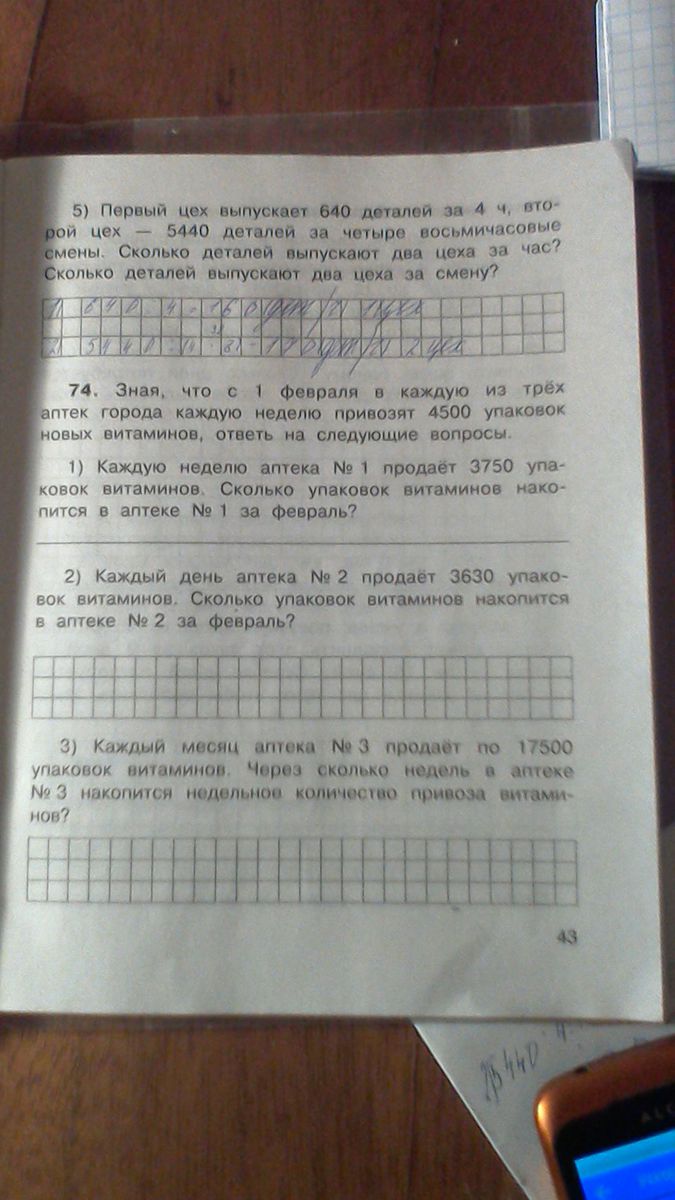 5) Первый цех выпускает 640 деталей за 4 ч, вто-
рой цех — 5440 деталей за четыре восьмичасовые
смены. Сколько деталей выпускают два цеха за час?
Сколько деталей выпускают два цеха за смену?
1) 640 : 4 = 160
2) 5440
74. Зная, что с 1 февраля в каждую из трёх
аптек города каждую неделю привозят 4500 упаковок
новых витаминов, ответь на следующие вопросы.
1) Каждую неделю аптека № 1 продаёт 3750 упа-
ковок витаминов. Сколько упаковок витаминов нако-
пится в аптеке № 1 за февраль?
2) Каждый день аптека № 2 продаёт 3630 упако-
вок витаминов. Сколько упаковок витаминов накопится
в аптеке № 2 за февраль?
3) Каждый месяц аптека № 3 продаёт по 17500
упаковок витаминов. Через сколько недель в аптеке
№ 3 накопится недельное количество привоза витами-
нов?
43